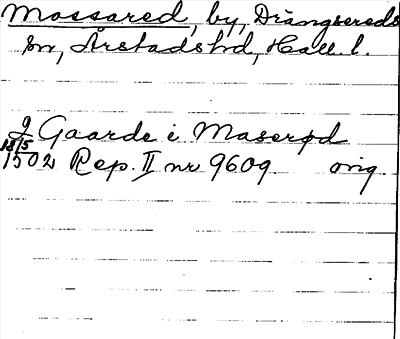 Mossared, by, Drängsereds
sn, Årstads hd, Hall. l.
J Gaarde i Maserød
18/5
1502 Rep. II nr 9609 orig.